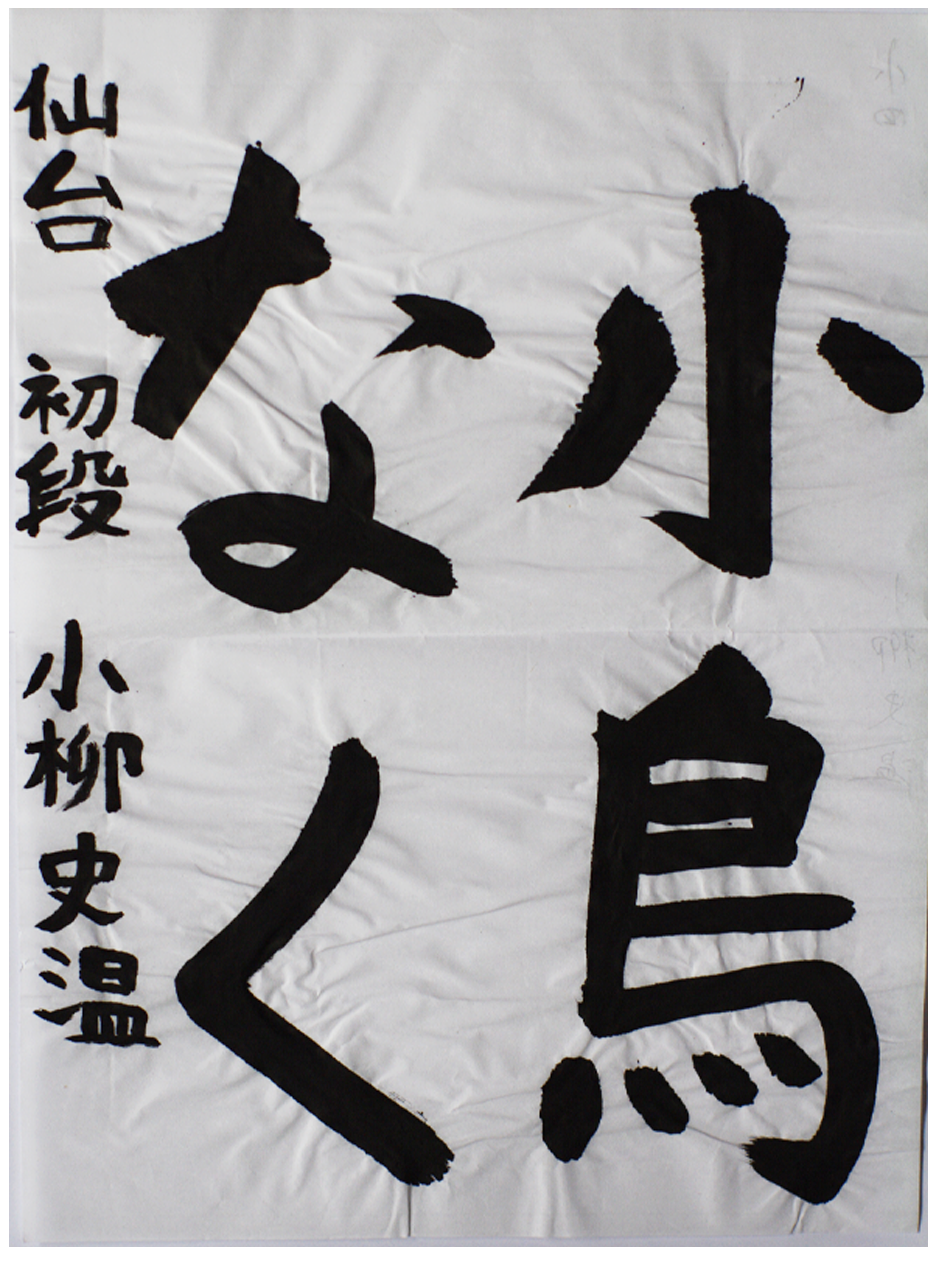 小鳥
なく
仙台 初段 小柳史温